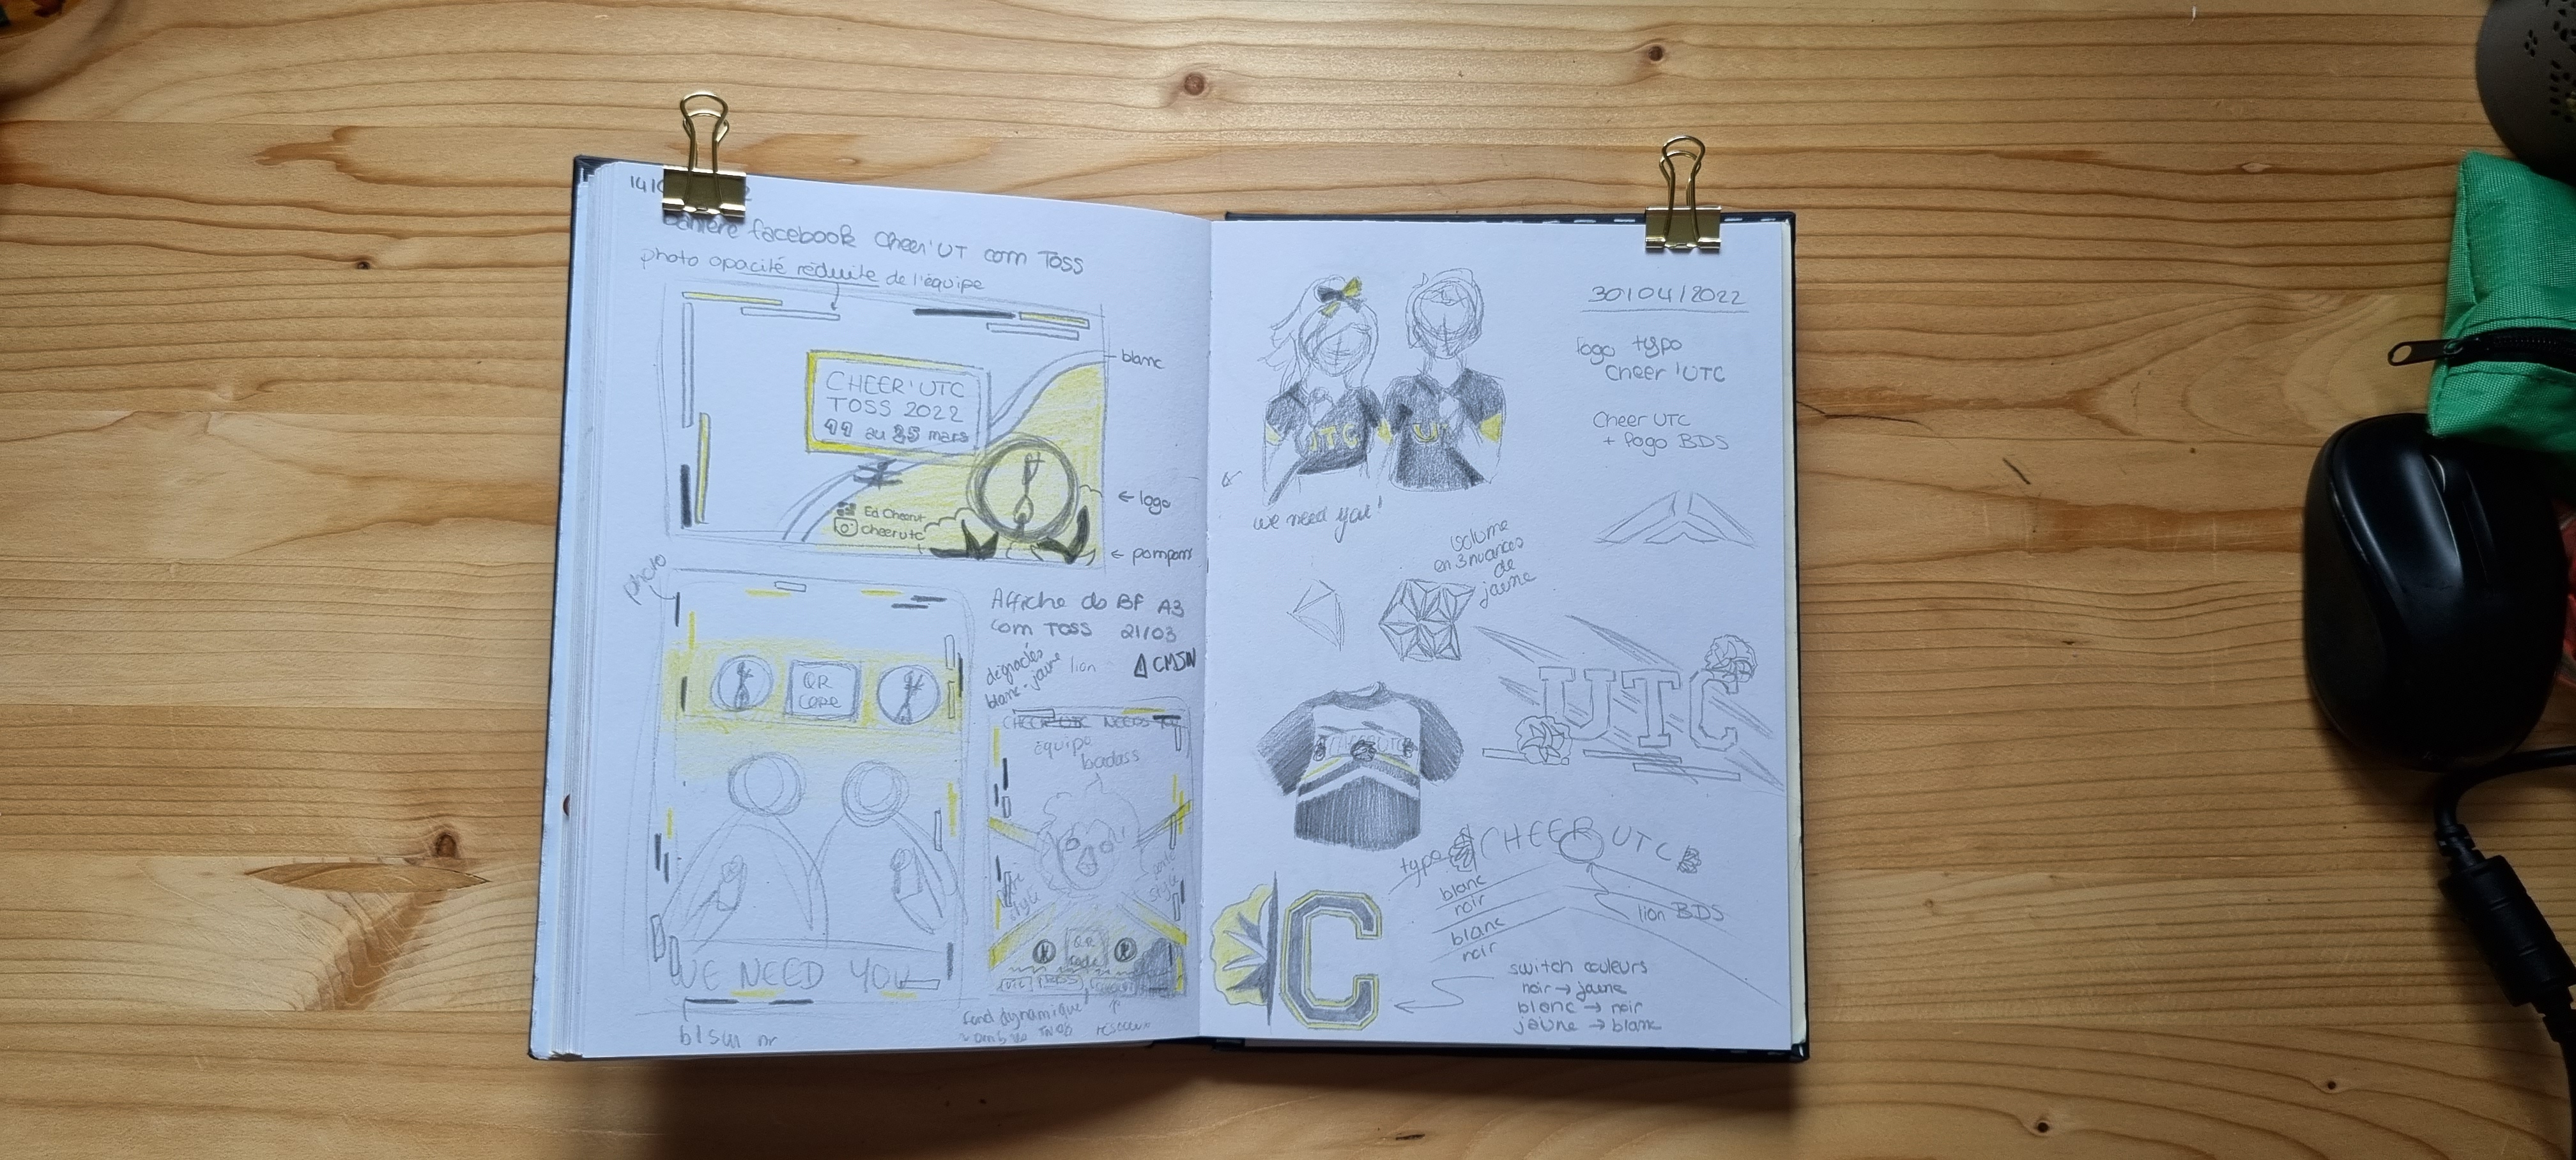 banière facebook Cheer'UT com TOSS
photo opacité réduite de l'équipe
CHEER'UTC
TOSS 2022
au 25 mars
blanc
← logo
Ed Cheerut
cheerutc
← pompons
photo
QR
Code
WE NEED YOU
Affiche do BF A3
com TOSS 21/03
dégradés
blanc-jaune
lion
CMJN
CHEER UTC NEEDS YOU
équipe
badass
QR
code
fond dynamique
30/04/2022
logo typo
Cheer'UTC
Cheer UTC
+ logo BDS
UTC
U
we need you!
volume
en 3 nuances
de
jaune
UTC
CHEER UTC
typo
CHEER UTC
blanc
noir
blanc
noir
lion BDS
C
switch couleurs
noir → jaune
blanc → noir
jaune → blanc